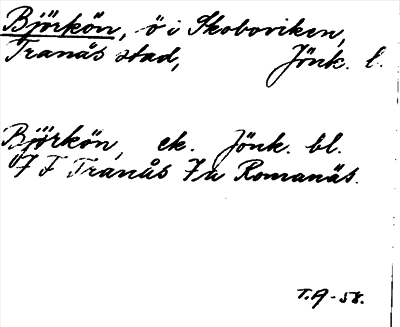 Björkön, ö i Skoboviken,
Tranås stad, Jönk. l.
Björkön, ek. Jönk. bl.
7 F Tranås 7 u Romanäs.
T.A-58.